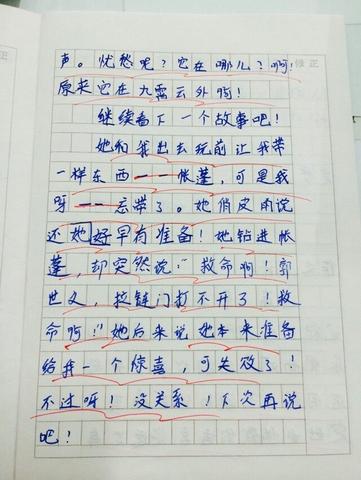 声。忧愁呢？它在哪儿？啊！
原来它在九霄云外呀！
继续看下一个故事吧！
她们我出去玩前让我带
一样东西——帐蓬，可是我
呀——忘带了。她俏皮的说
还她好早有准备！她钻进帐
蓬，却突然说："救命啊！郭
世义，拉链门打不开了！救
命啊！"她后来说她本来准备
给我一个惊喜，可失败了！
不过呀！没关系！下次再说
吧！
修正